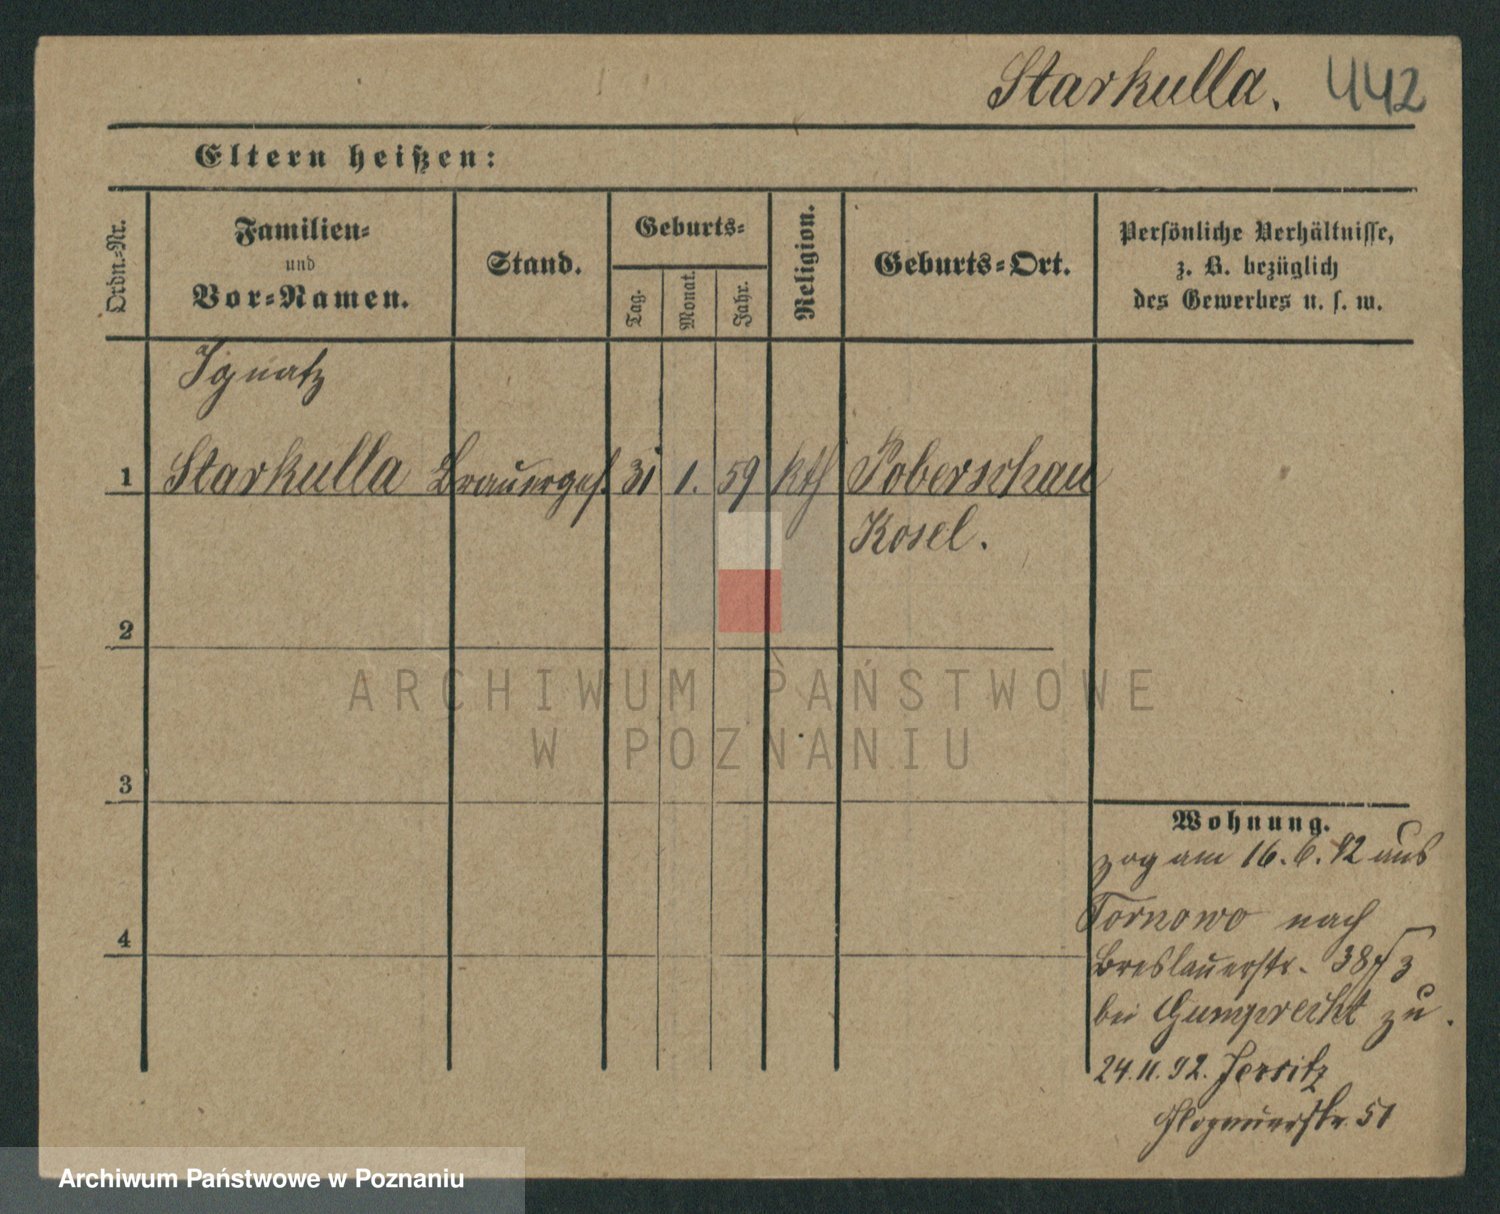 Starkulla. 442
Eltern heißen:
Ordn.-Nr.
Familien-
und
Vor-Namen.
Stand.
Geburts-
Tag.
Monat.
Jahr.
Religion.
Geburts-Ort.
Persönliche Verhältnisse,
z. B. bezüglich
des Gewerbes u. s. w.
Ignatz
1 Starkulla Brauerges. 31 1. 59 kth Poberschau
Kosel.
2
3
4
Wohnung.
zog am 16. 6. 92 aus
Tornowo nach
Breslauerstr. 38
bei Gumprecht zu.
24.11.92. Jersitz
Glogauerstr. 51
ARCHIWUM PAŃSTWOWE
W POZNANIU
Archiwum Państwowe w Poznaniu